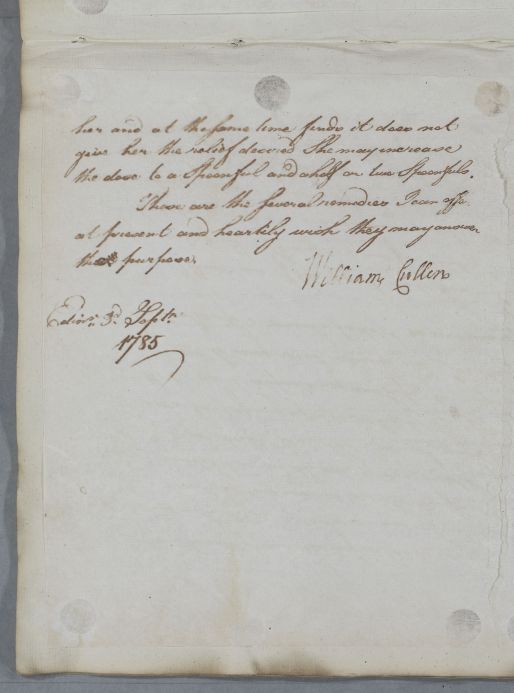 her and at the same time finds it does not
give her the relief desired She may increase
the dose to a Spoonful and a half or two Spoonfuls.
These are the several remedies I can offer
at present and heartily wish they may answer
the purpose.
William Cullen
Edinr. 3d Septr.
1785